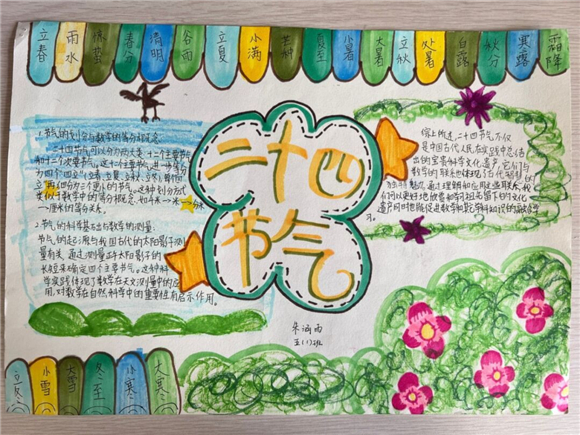 立春
雨水
惊蛰
春分
清明
谷雨
立夏
小满
芒种
夏至
小暑
大暑
立秋
处暑
白露
秋分
寒露
霜降
二十四
节气
1.节气的划分与数学的等分概念.
二十四节气可以分为两大类:十二个主要节气
和十二个次要节气。这十二个主要节气,
为四个"四立"(立春、立夏、立秋、立冬),每个"四
立"再细分为三个更小的节气。这种划分方式
类似于数学中的等分概念,
→厘米的等分关系。
2.节气的科学基石出与数学的测量:
节气的起源与我国古代的太阳影子测
量有关,通过测量正午太阳影子的
长短来确定四个主要节气。这种科
学实践体现了数学在天文测量中的应
用,对数学在自然科学中的重要性有启示作用。
综上所述,二十四节气不仅
是中国古代人民在实践中总结
出的宝贵科学文化遗产,它们与
数学的联系也体现了古代智慧的
独特魅力。通过理解和应用这些联系,我
们可以更好地欣赏和学习祖先留下的文化
遗产,同时也能促进数学和
班
立冬
小雪
大雪
冬至
小寒
大寒